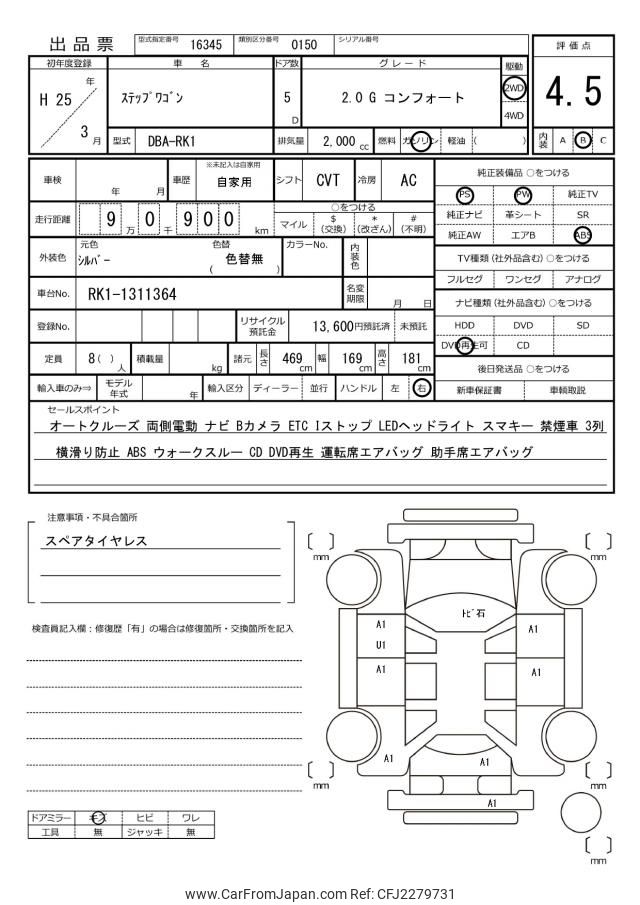 出品票 型式指定番号 16345 類別区分番号 0150 シリアル番号
評価点
4.5
内装 A B C
初年度登録 車名 ドア数 グレード 駆動
H 25 年 3 月 ステップワゴン 5 D 2.0 G コンフォート 2WD 4WD
型式 DBA-RK1 排気量 2,000 cc 燃料 ガソリン 軽油 ( )
車検 年 月 車歴 ※未記入は自家用 自家用 シフト CVT 冷房 AC
走行距離 9 万 0 千 9 0 0 km
○をつける
マイル $ (交換) * (改ざん) # (不明)
外装色 元色 シルバー 色替 ( 色替無 ) カラーNo. 内装色
車台No. RK1-1311364 名変期限 月 日
登録No. リサイクル預託金 13,600円預託済 未預託
定員 8( ) 人 積載量 kg 諸元 長さ 469 cm 幅 169 cm 高さ 181 cm
輸入車のみ⇒ モデル年式 年 輸入区分 ディーラー 並行 ハンドル 左 右
純正装備品 ○をつける
PS PW 純正TV
純正ナビ 革シート SR
純正AW エアB ABS
TV種類 (社外品含む) ○をつける
フルセグ ワンセグ アナログ
ナビ種類 (社外品含む) ○をつける
HDD DVD SD
DVD再生可 CD
後日発送品 ○をつける
新車保証書 車輌取説
セールスポイント
オートクルーズ 両側電動 ナビ Bカメラ ETC Iストップ LEDヘッドライト スマキー 禁煙車 3列
横滑り防止 ABS ウォークスルー CD DVD再生 運転席エアバッグ 助手席エアバッグ
注意事項・不具合箇所
スペアタイヤレス
検査員記入欄:修復歴「有」の場合は修復箇所・交換箇所を記入
ドアミラー キズ ヒビ ワレ
工具 無 ジャッキ 無
mm mm
トビ石
A1 A1
U1
A1 A1
A1 A1
mm mm
A1
mm
www.CarFromJapan.com Ref: CFJ2279731